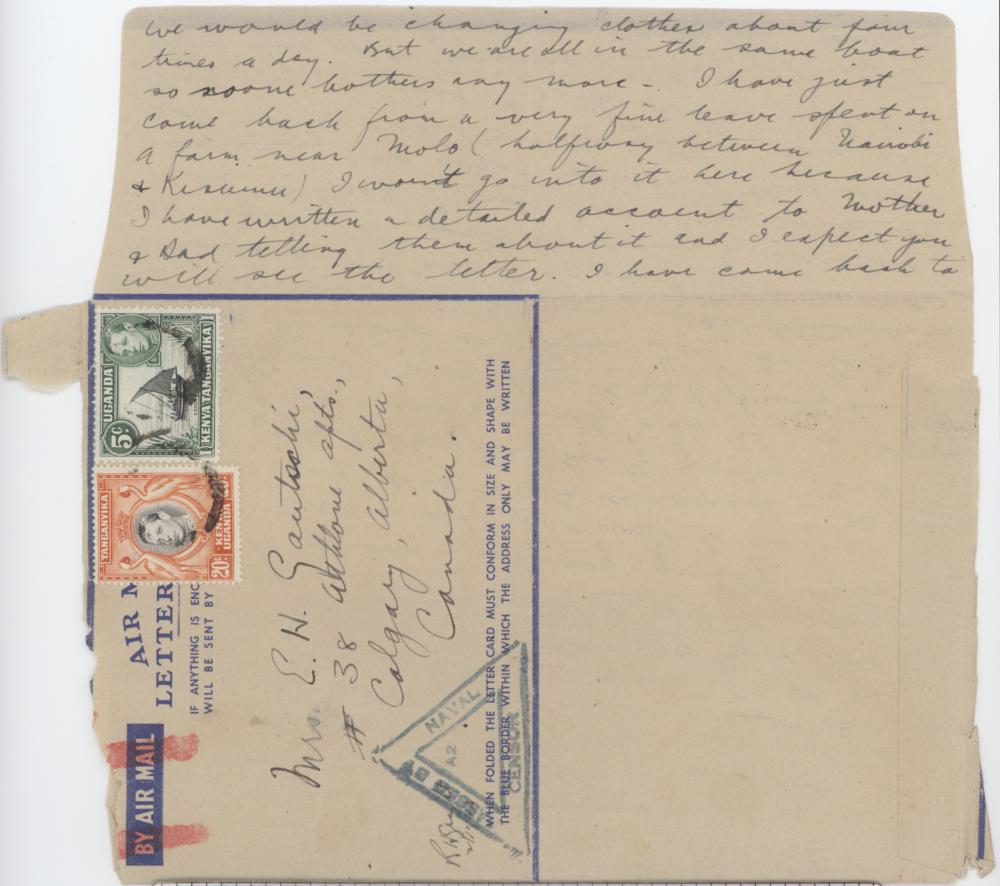 we would be changing clothes about four
times a day. But we are all in the same boat
so noone bothers any more - I have just
come back from a very fine leave spent on
a farm near Molo (halfway between Nairobi
& Kisumu) I won't go into it here because
I have written a detailed account to Mother
& Dad telling them about it and I expect you
will see the letter. I have come back to
UGANDA
KENYA TANGANYIKA
5c
TANGANYIKA
KENYA
UGANDA
20c
AIR M
LETTER
IF ANYTHING IS ENC
WILL BE SENT BY
BY AIR MAIL
Mrs. E. H. Gautschi,
# 38 Athlone apts.,
Calgary, Alberta,
Canada.
WHEN FOLDED THE LETTER CARD MUST CONFORM IN SIZE AND SHAPE WITH
THE BLUE BORDER WITHIN WHICH THE ADDRESS ONLY MAY BE WRITTEN
NAVAL
A2
CENSOR
BY